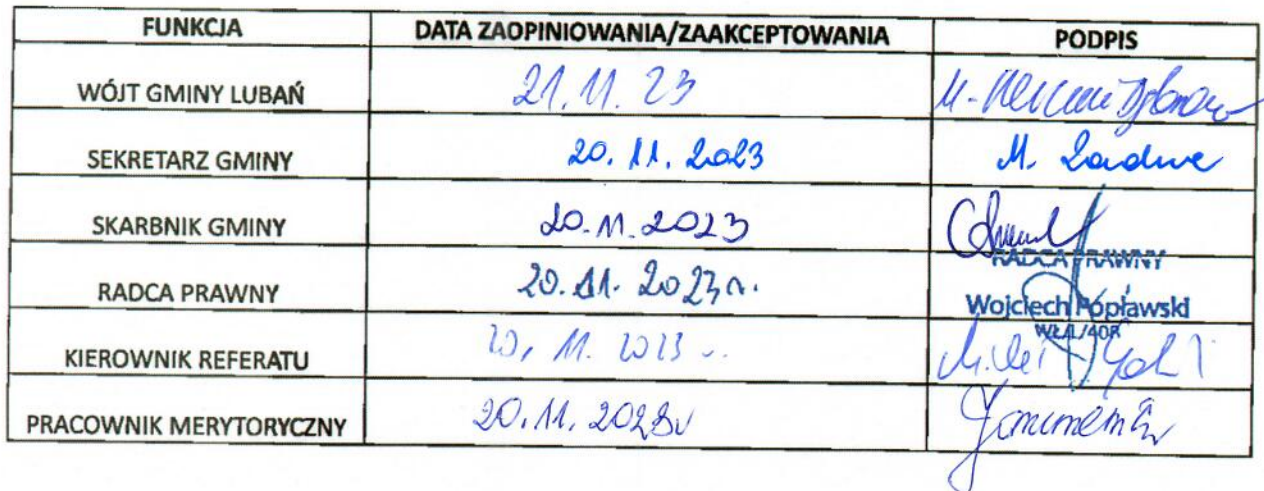 FUNKCJA DATA ZAOPINIOWANIA/ZAAKCEPTOWANIA PODPIS
WÓJT GMINY LUBAŃ 21.11.23 M.
SEKRETARZ GMINY 20.11.2023 M.
SKARBNIK GMINY 20.11.2023
RADCA PRAWNY
RADCA PRAWNY 20.11.2023r. Wojciech Popławski
KIEROWNIK REFERATU 20.11.2023r.
PRACOWNIK MERYTORYCZNY 20.11.2023r